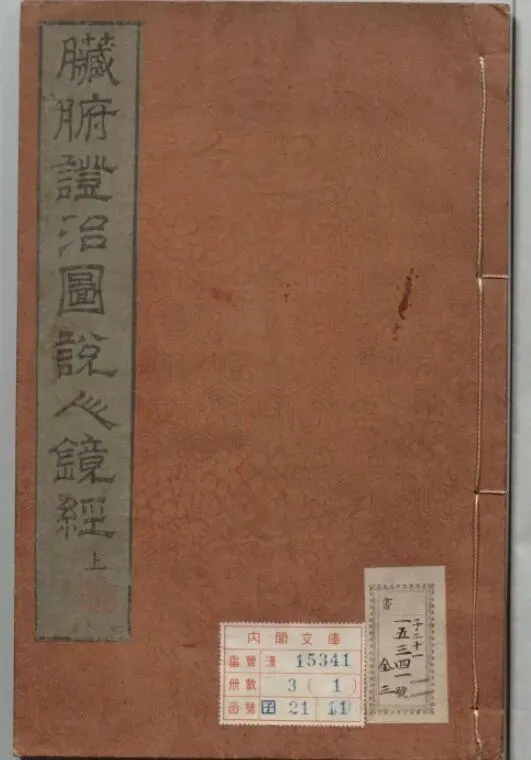 臟腑證治圖說人鏡經
上
內閣文庫
番號 漢 15341
冊數 3(1)
函號 子 21 11
書
子二十一
一五三四一號
全三